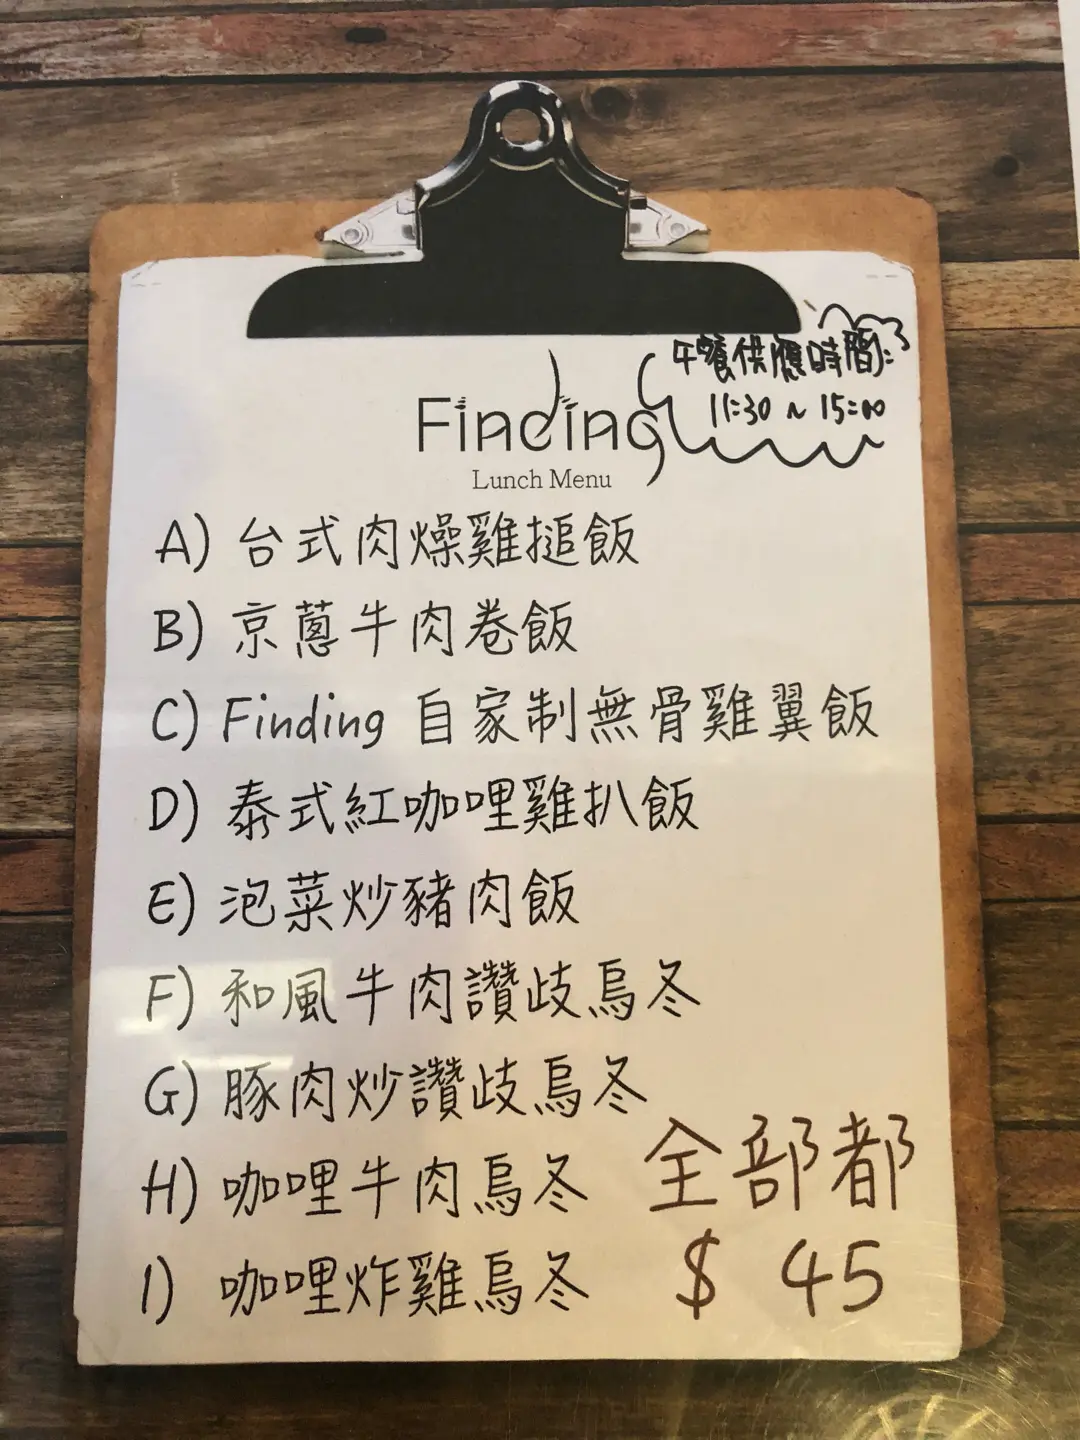 午餐供應時間:
11:30 ~ 15:00
Finding
Lunch Menu
A) 台式肉燥雞搥飯
B) 京蔥牛肉卷飯
C) Finding 自家制無骨雞翼飯
D) 泰式紅咖哩雞扒飯
E) 泡菜炒豬肉飯
F) 和風牛肉讚歧烏冬
G) 豚肉炒讚歧烏冬
H) 咖哩牛肉烏冬
I) 咖哩炸雞烏冬
全部都
$ 45